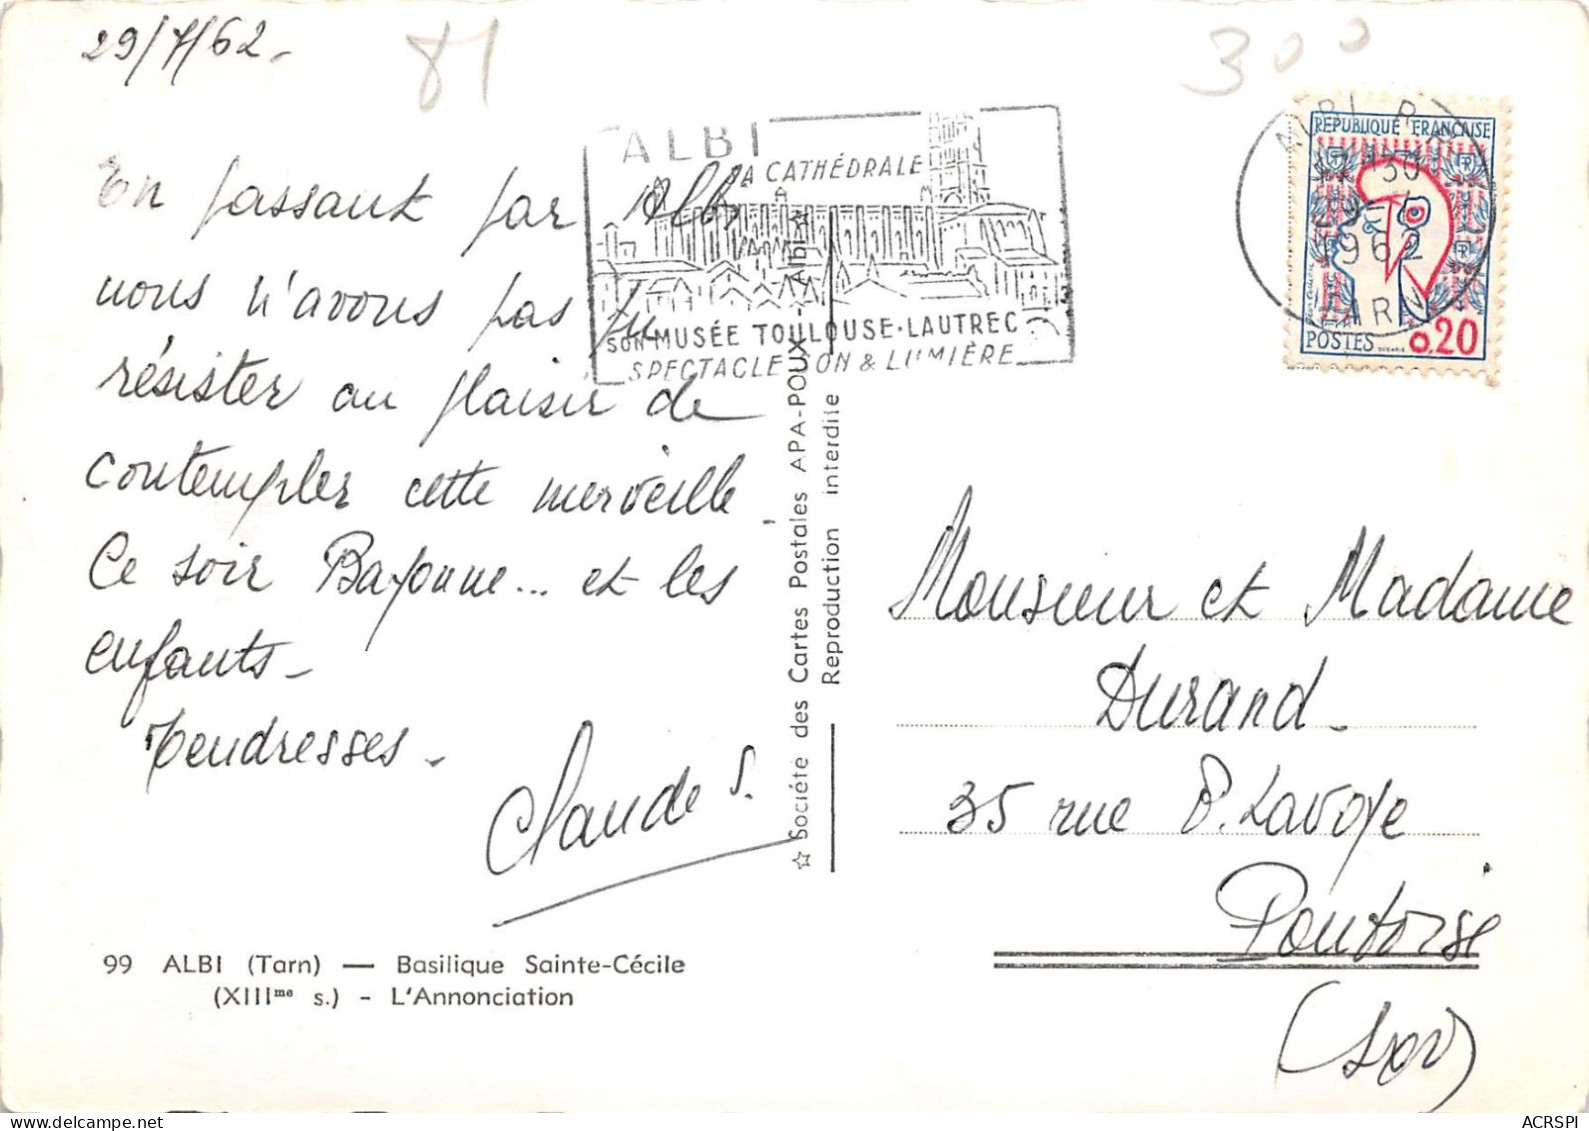 29/7/62.
81
300
En passant par Albi
nous n'avons pas pu
résister au plaisir de
contempler cette merveille.
Ce soir Bayonne... et les
enfants.
Tendresses.
Claude S.
99 ALBI (Tarn) — Basilique Sainte-Cécile
(XIIIme s.) - L'Annonciation
ALBI
SA CATHÉDRALE
SON MUSÉE TOULOUSE-LAUTREC
SPECTACLE SON & LUMIÈRE
☆ Société des Cartes Postales APA-POUX - Albi ☆
Reproduction interdite
RÉPUBLIQUE FRANÇAISE
POSTES 0,20
ALBI R.P.
1962
TARN
Monsieur et Madame
Durand.
35 rue P. Lavoye
Pontoise
ACRSPI